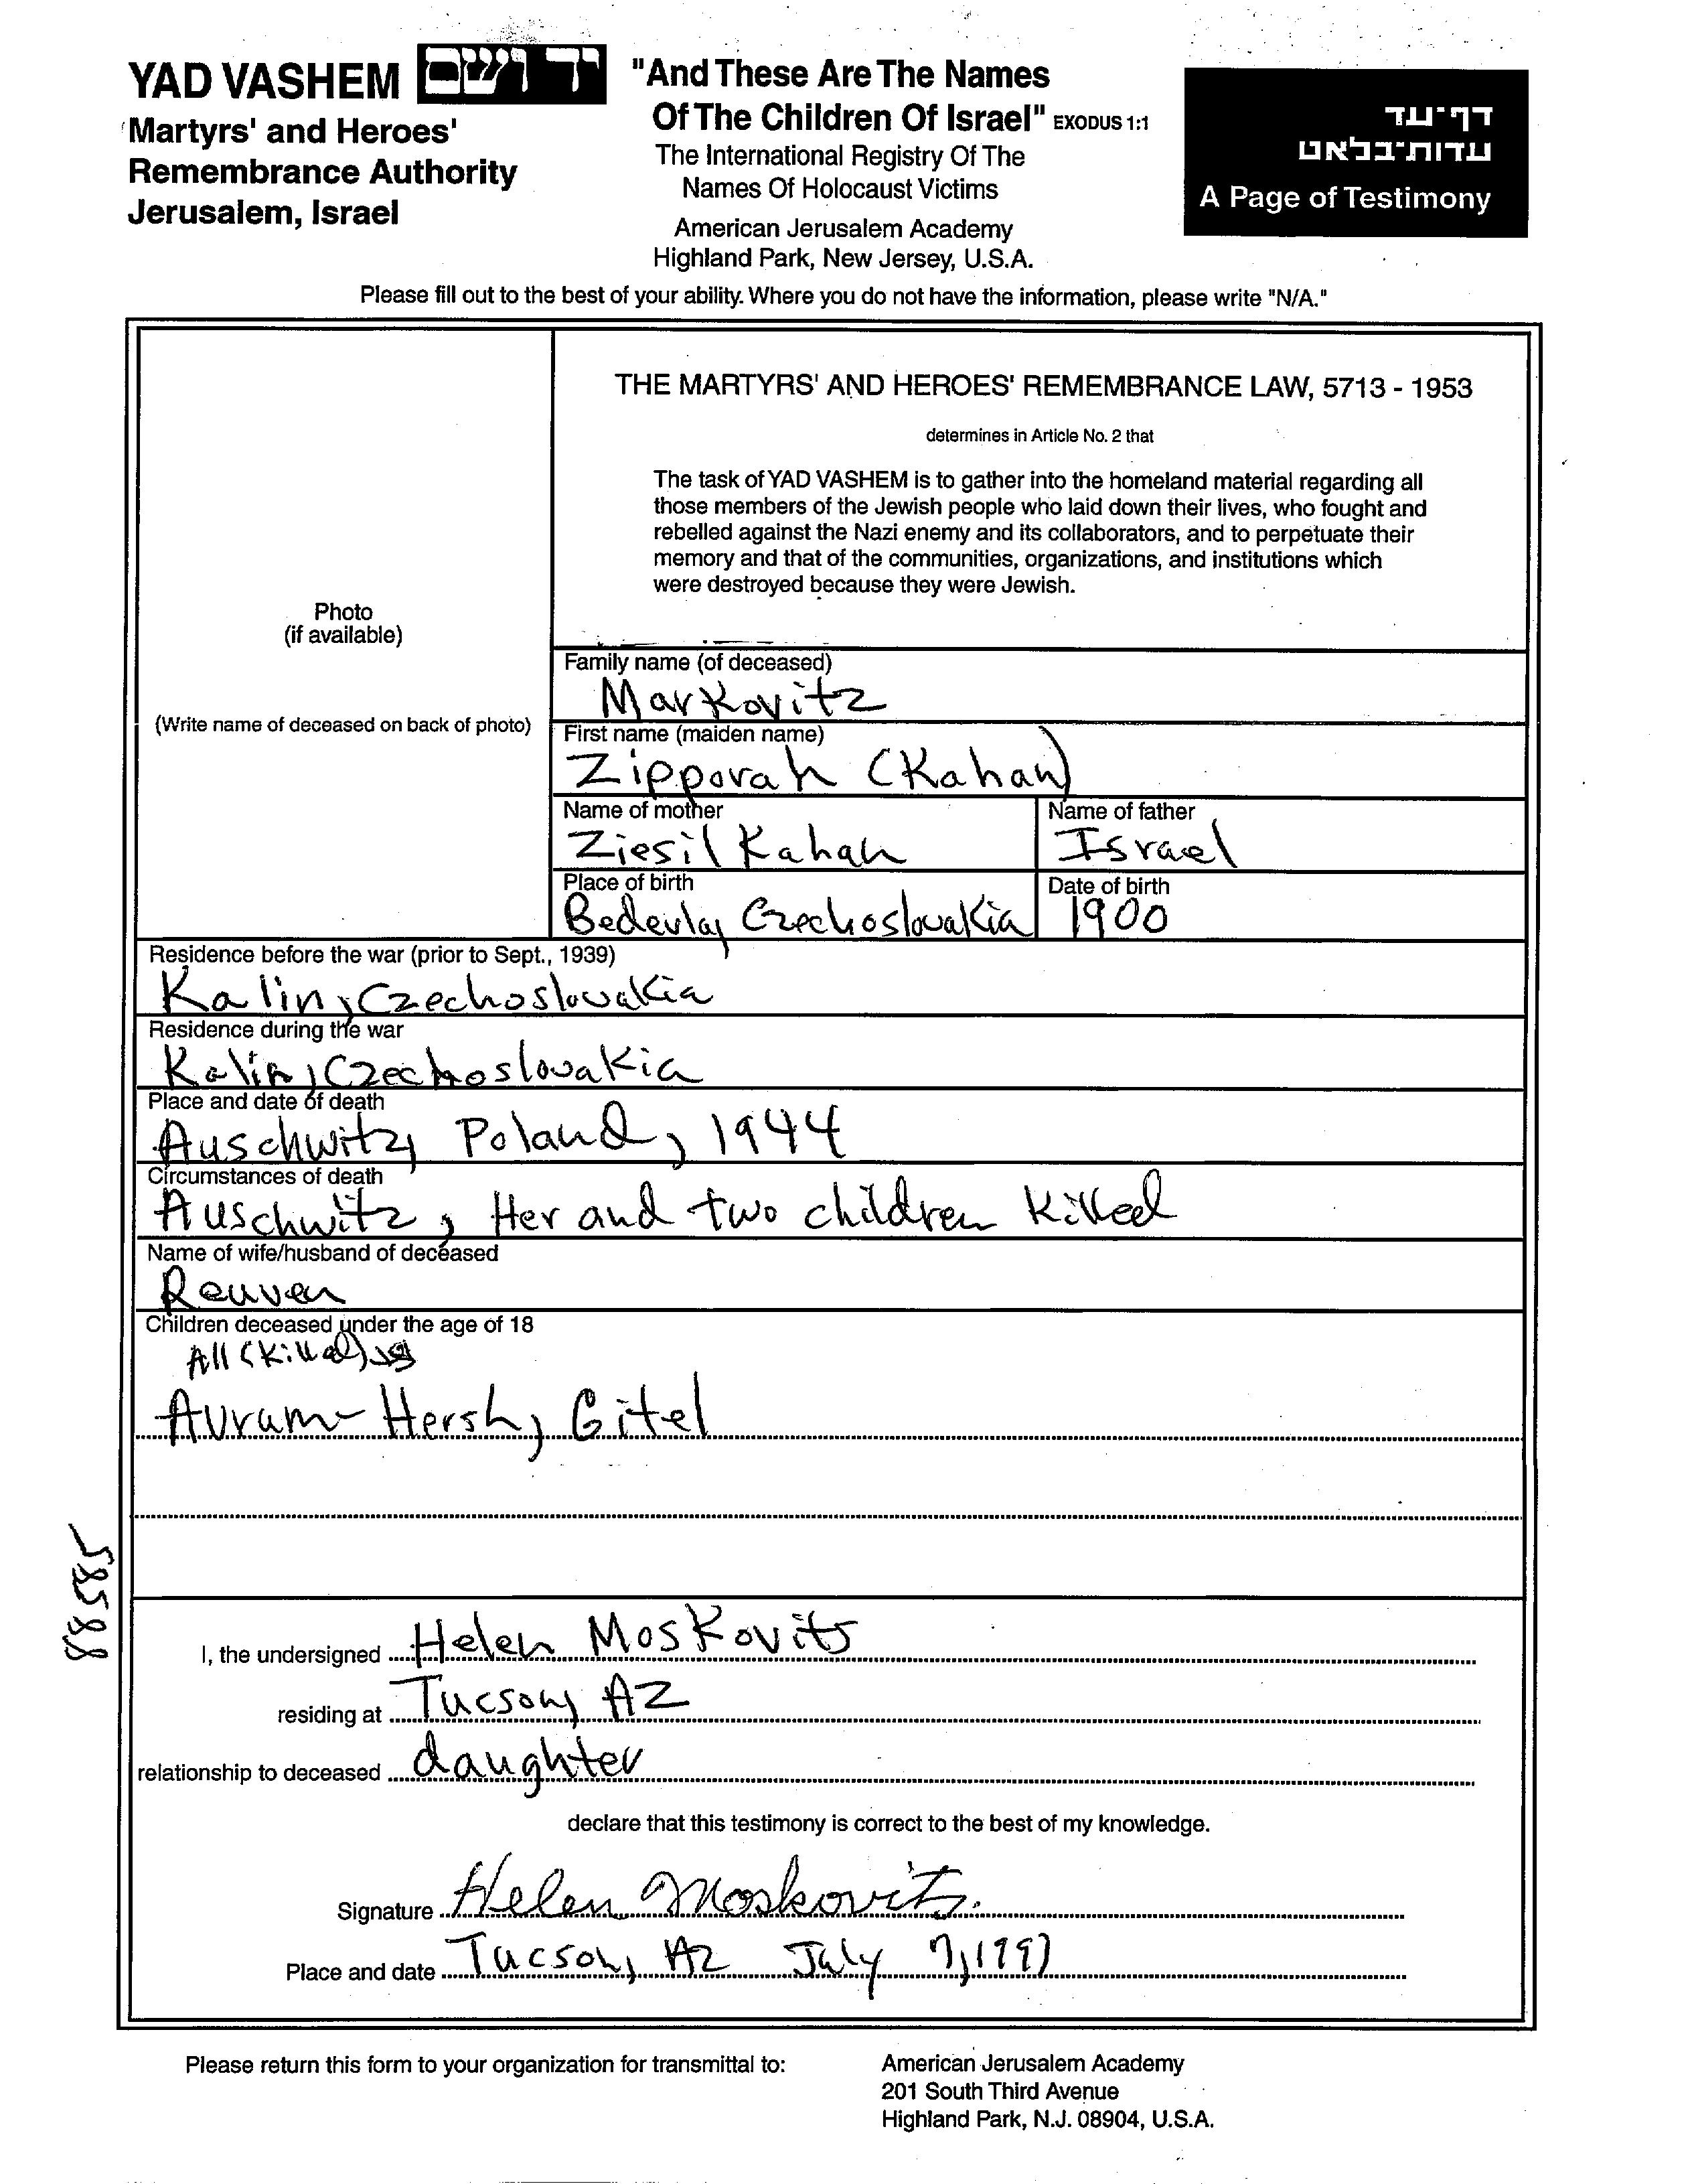 YAD VASHEM יד ושם
Martyrs' and Heroes'
Remembrance Authority
Jerusalem, Israel
"And These Are The Names
Of The Children Of Israel" EXODUS 1:1
The International Registry Of The
Names Of Holocaust Victims
American Jerusalem Academy
Highland Park, New Jersey, U.S.A.
דף־עד
עדות־בלאט
A Page of Testimony
Please fill out to the best of your ability. Where you do not have the information, please write "N/A."
Photo
(if available)
(Write name of deceased on back of photo)
THE MARTYRS' AND HEROES' REMEMBRANCE LAW, 5713 - 1953
determines in Article No. 2 that
The task of YAD VASHEM is to gather into the homeland material regarding all
those members of the Jewish people who laid down their lives, who fought and
rebelled against the Nazi enemy and its collaborators, and to perpetuate their
memory and that of the communities, organizations, and institutions which
were destroyed because they were Jewish.
Family name (of deceased)
Markovitz
First name (maiden name)
Zipporah (Kahan)
Name of mother
Ziesil Kahan
Name of father
Israel
Place of birth
Bedevla, Czechoslovakia
Date of birth
1900
Residence before the war (prior to Sept., 1939)
Kalin, Czechoslovakia
Residence during the war
Kalin, Czechoslovakia
Place and date of death
Auschwitz, Poland, 1944
Circumstances of death
Auschwitz, Her and two children killed
Name of wife/husband of deceased
Reuven
Children deceased under the age of 18
All (killed)
Avram-Hersh, Gitel
88585
I, the undersigned Helen Moskovits
residing at Tucson, AZ
relationship to deceased daughter
declare that this testimony is correct to the best of my knowledge.
Signature Helen Moskovits.
Place and date Tucson, AZ July 7, 1997
Please return this form to your organization for transmittal to:
American Jerusalem Academy
201 South Third Avenue
Highland Park, N.J. 08904, U.S.A.